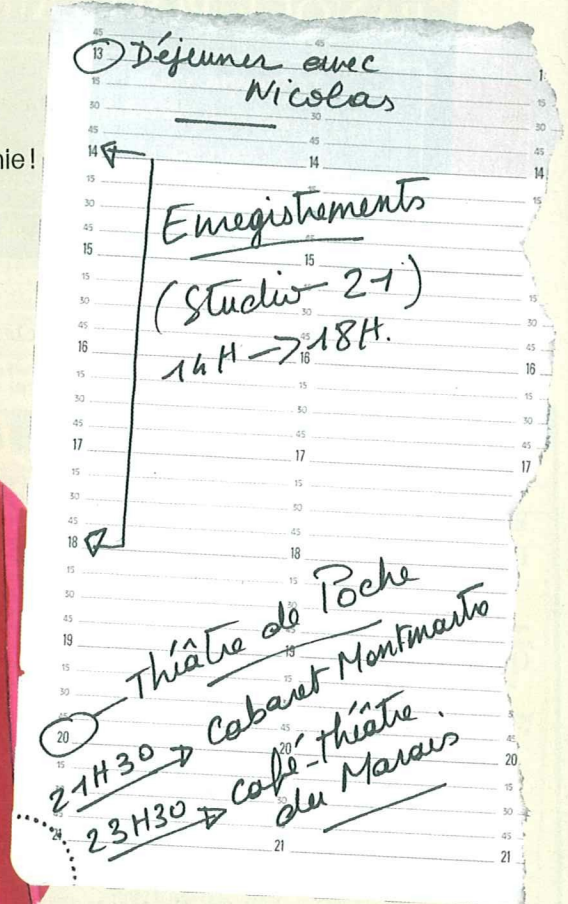 nie!
13 Déjeuner avec
Nicolas
14
Enregistrements
15
(Studio 21)
14H → 18H.
16
17
18
Théâtre de Poche
19
20
21H30 → Cabaret Montmartre
23H30 → Café-Théâtre
du Marais
21